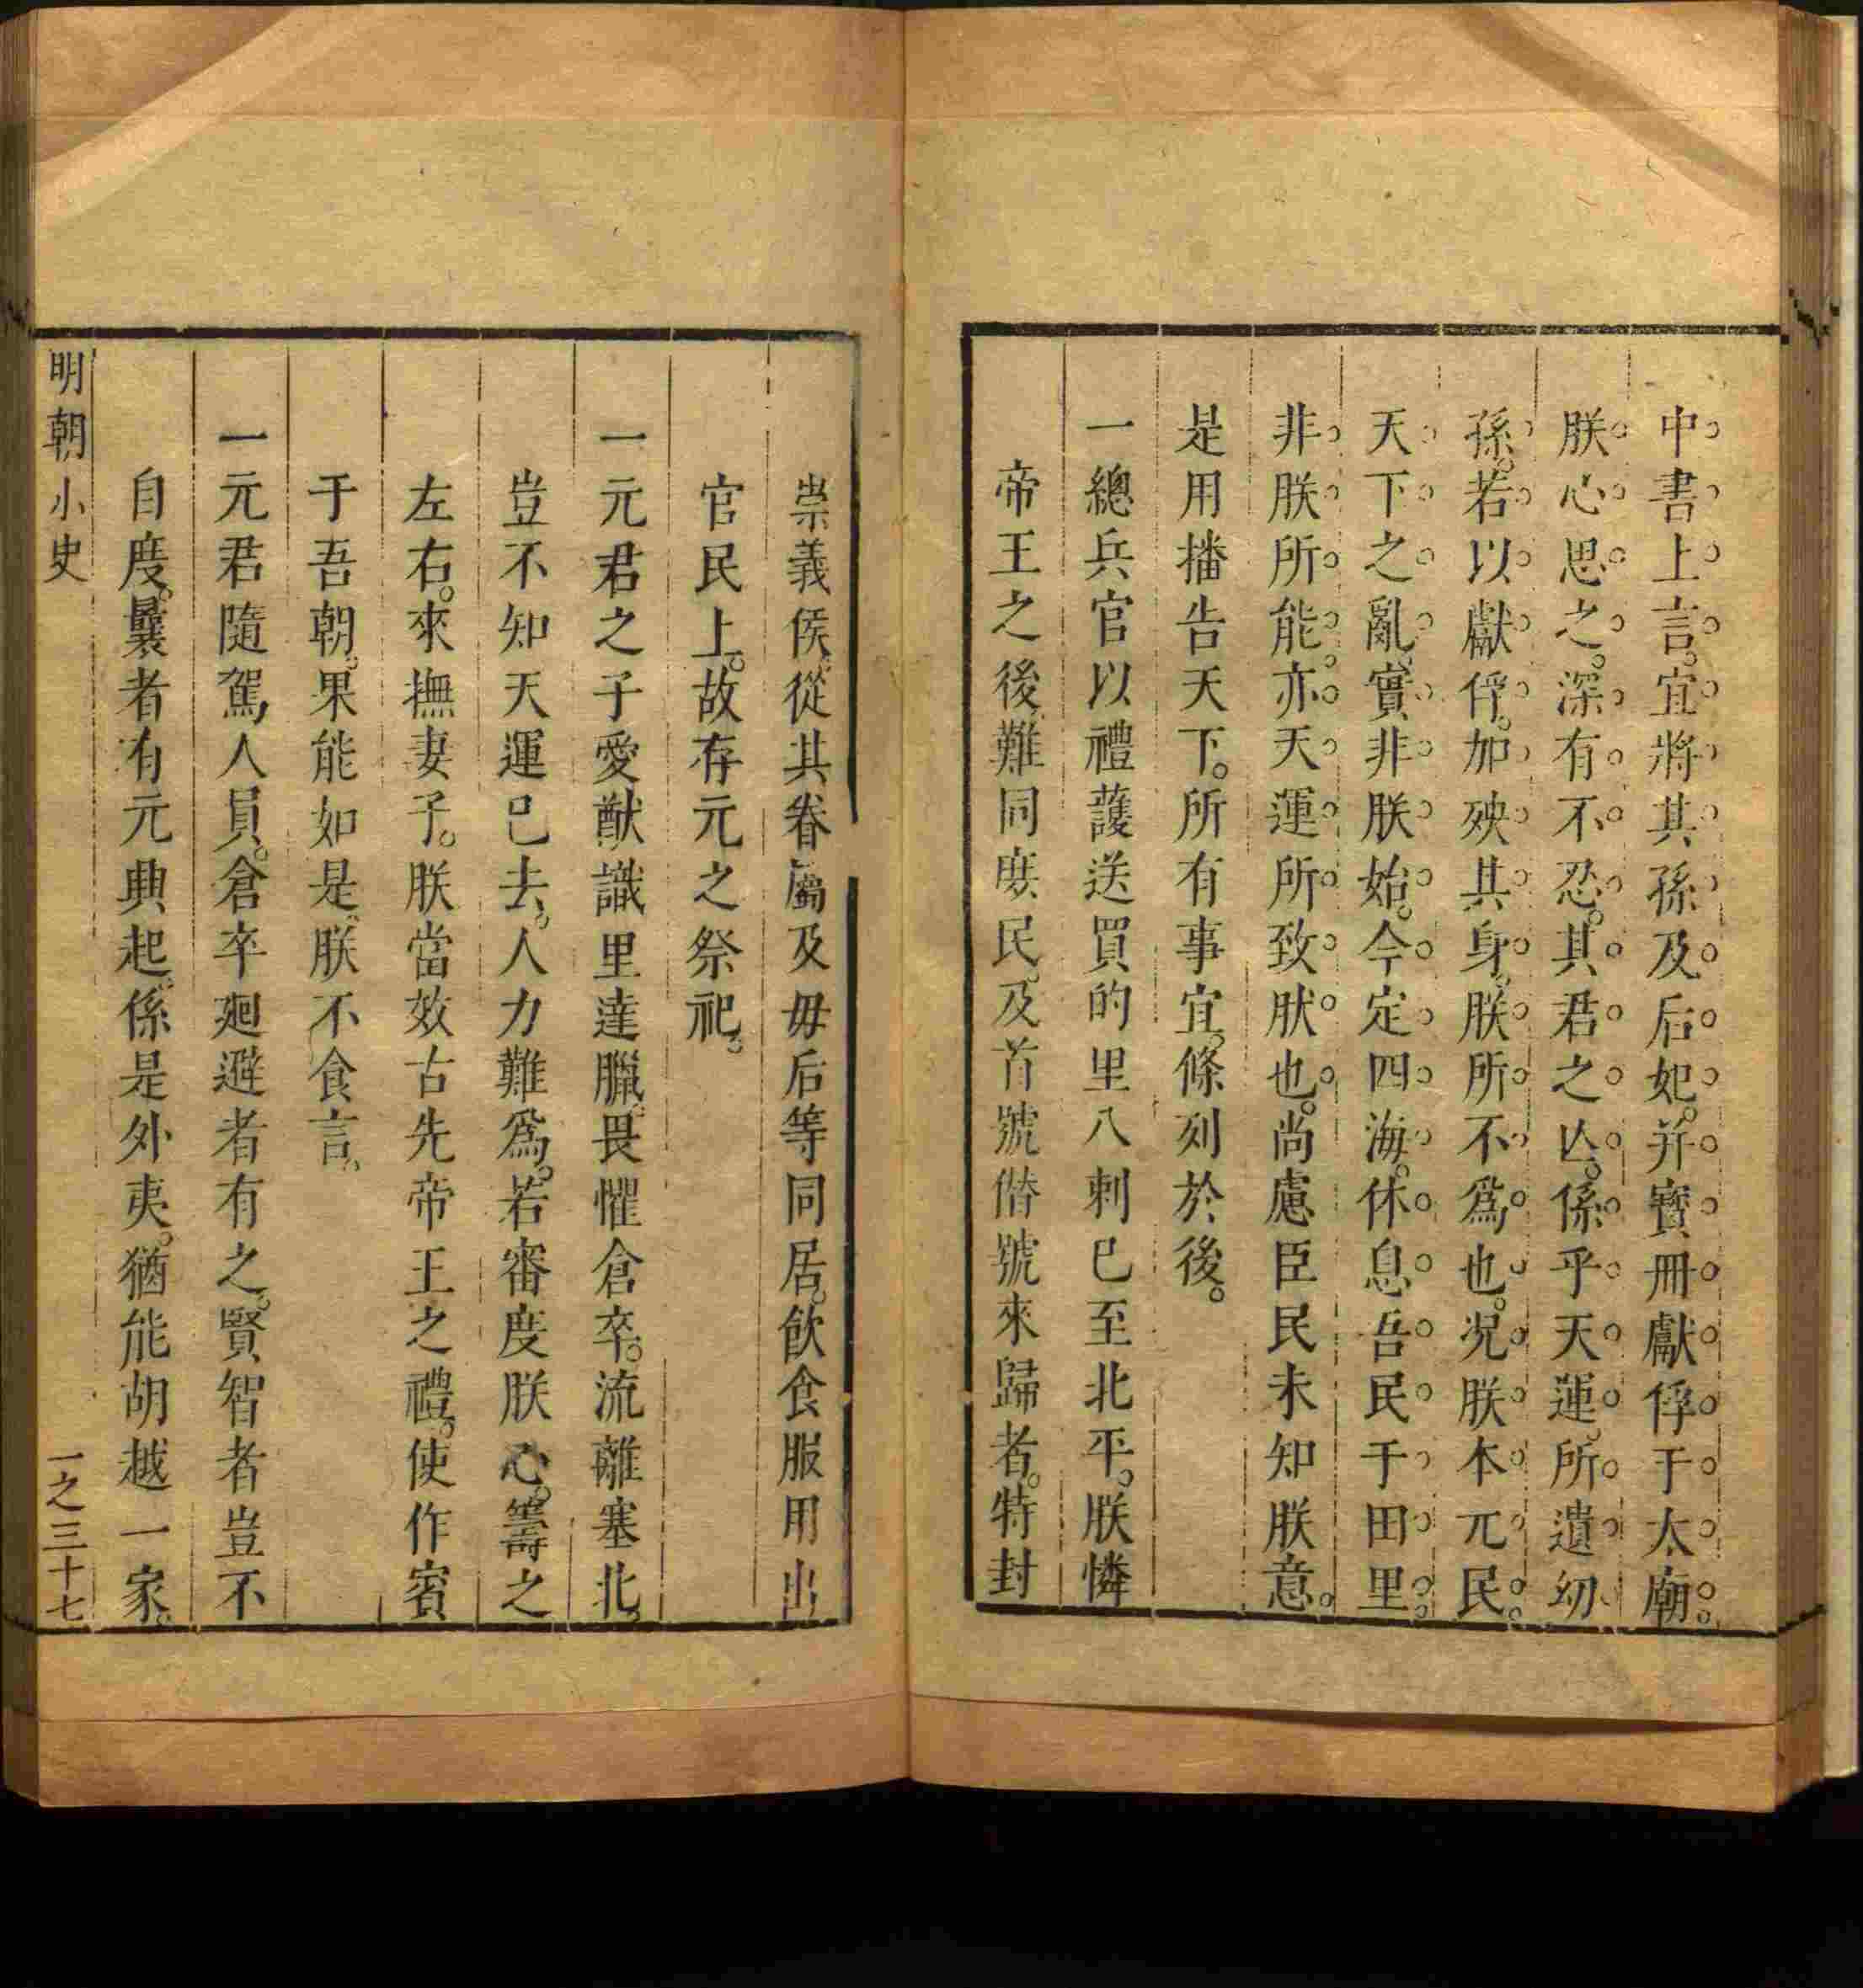 中書上言。宜將其孫及后妃。并寶冊獻俘于太廟。
朕心思之。深有不忍。其君之亾。係乎天運。所遺幼
孫。若以獻俘。加殃其身。朕所不爲也。况朕本元民。
天下之亂。實非朕始。今定四海。休息吾民于田里。
非朕所能。亦天運所致肰也。尚慮臣民未知朕意。
是用播告天下。所有事宜。條列於後。
一總兵官以禮護送買的里八剌巳至北平。朕憐
帝王之後。難同庻民。及首號僭號來歸者。特封
崇義侯。從其眷屬及毋后等同居。飲食服用出
官民上。故存元之祭祀。
一元君之子愛猷識里達臘。畏懼倉卒。流離塞北。
豈不知天運巳去。人力難爲。若審度朕心。籌之
左右。來撫妻子。朕當效古先帝王之禮。使作賓
于吾朝。果能如是。朕不食言。
一元君隨駕人員。倉卒廻避者有之。賢智者豈不
自度。曩者有元典起。係是外夷。猶能胡越一家。
明朝小史
一之三十七